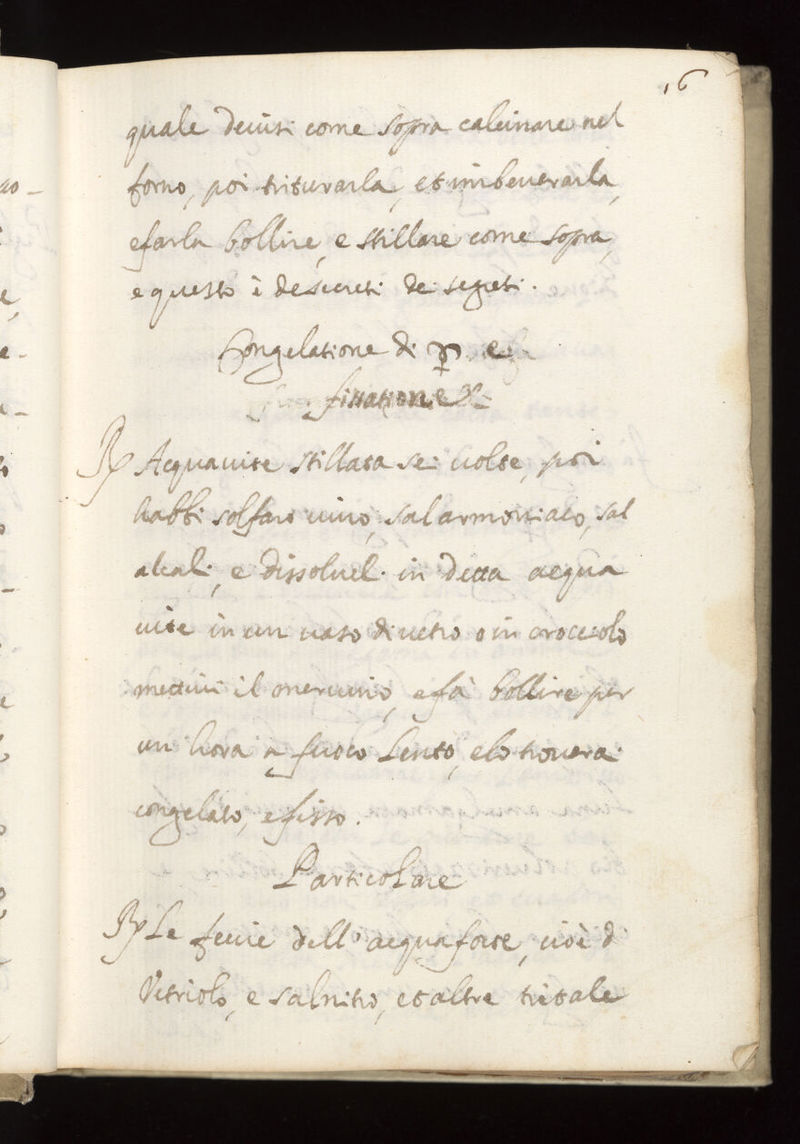 16
quale devisi come sopra calcinare nel
forno, poi triturarla, et imbeverarla,
e farla bollire, e stillare come sopra,
e questo è de secreti de segreti.
Congelatione di ☿ e
fissatione
℞ Acquavite stillata sei volte, poi
habbi solfaro vivo, sal armoniaco, sal
alcali, e dissolvel. in detta acqua
vite in un vaso di vetro o in croceolo
mettivi il mercurio, e fà bollire per
un hora a fuoco Lento, e lo trovera.
congelato, e fisso.
Particolare
℞ Le feccie dell' acqua forte, cioè d
Vitriolo, e salnitro, et altre tritale